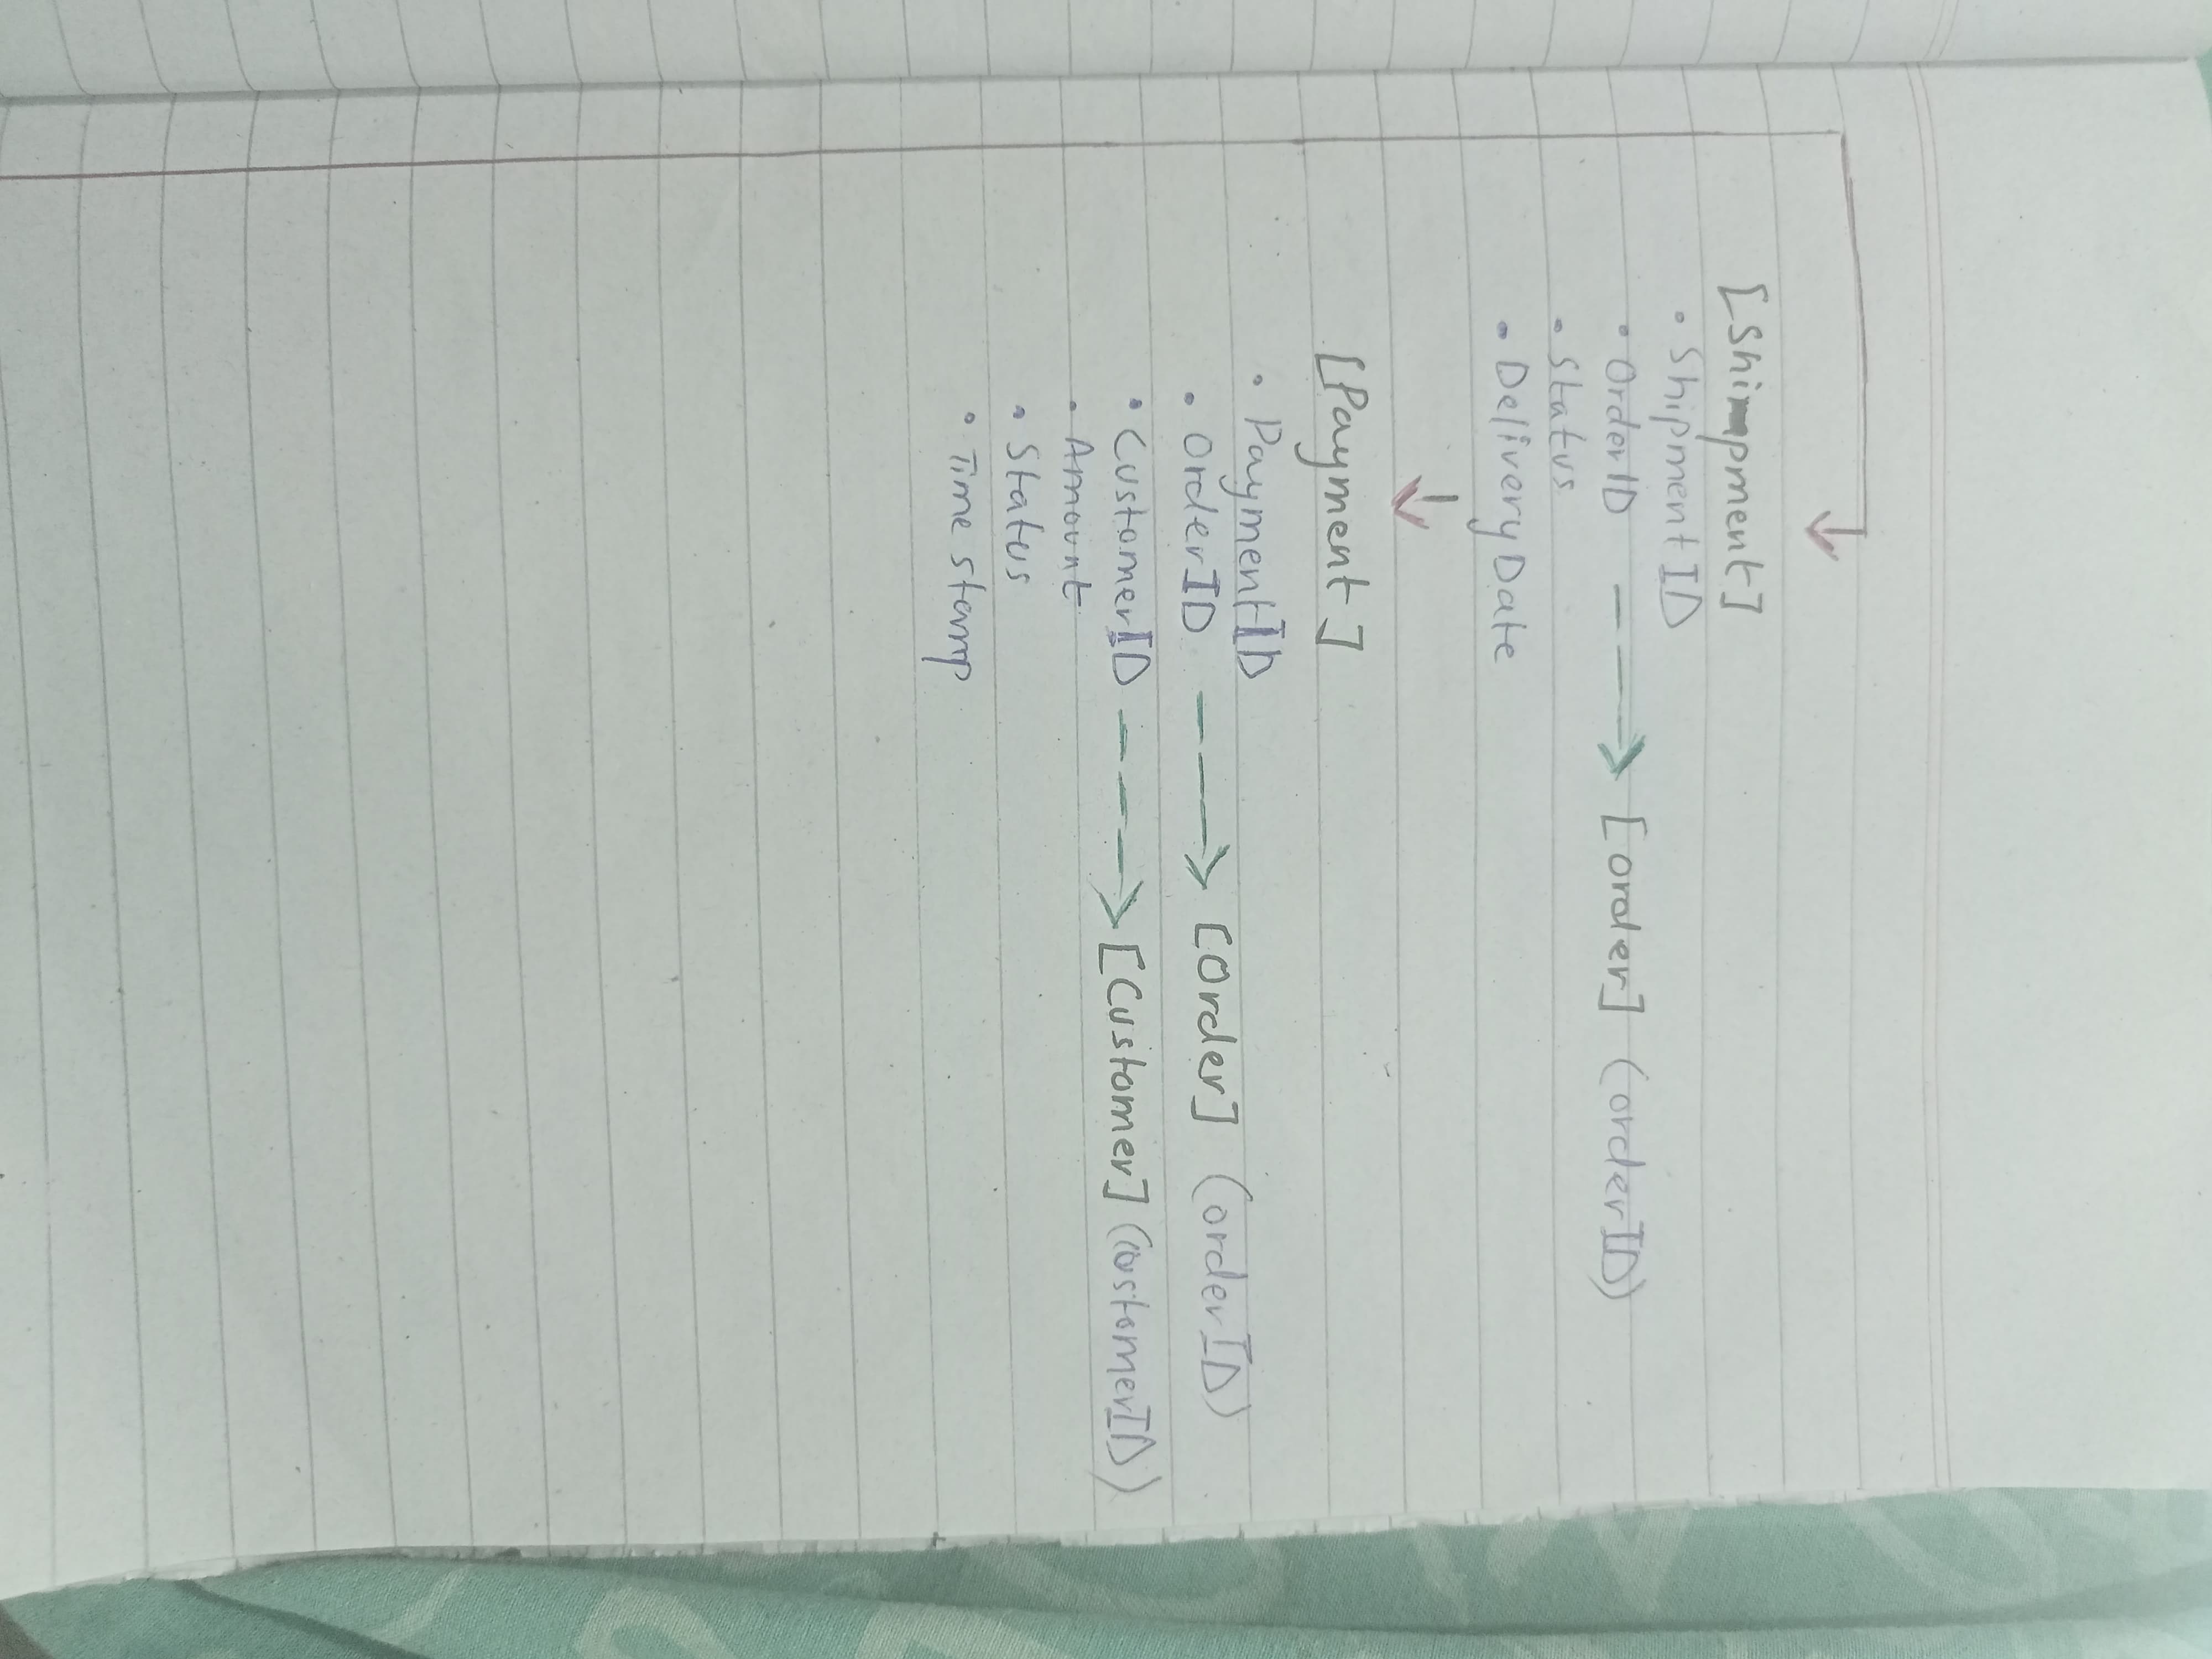 [Shipment]
• ShipmentID
• OrderID → [order] (orderID)
• Status
• DeliveryDate
[Payment]
• PaymentID
• OrderID → [Order] (orderID)
• CustomerID → [Customer] (CustomerID)
• Amount
• Status
• Time stamp